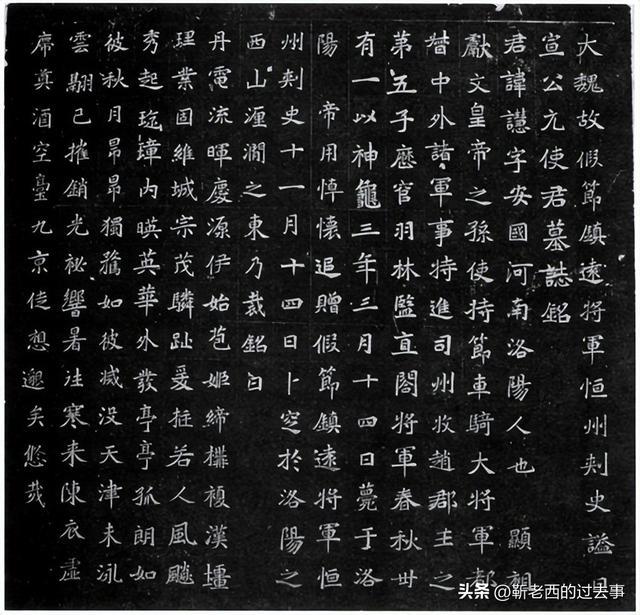 大魏故假節鎮遠將軍恒州刾史謚曰
宣公元使君墓誌銘
君諱譿字安國河南洛陽人也 顯祖
獻文皇帝之孫使持節車騎大將軍都
督中外諸軍事特進司州牧趙郡王之
第五子歷官羽林監直閣將軍春秋卅
有一以神龜三年三月十四日薨于洛
陽 帝用悼懷追贈假節鎮遠將軍恒
州刾史十一月十四日卜窆於洛陽之
西山湹澗之東乃裁銘曰
丹電流暉慶源伊始苞姬締構複漢壃
理業固維城宗茂驎趾爰挺若人風飈
秀起琁璋內暎英華外發亭亭孤朗如
彼秋月昂昂獨騖如彼滅没天津未泳
雲翮已摧銷光祕響暑往寒來陳衣虛
席奠酒空臺九京徒想邈矣悠哉
头条 @靳老西的过去事